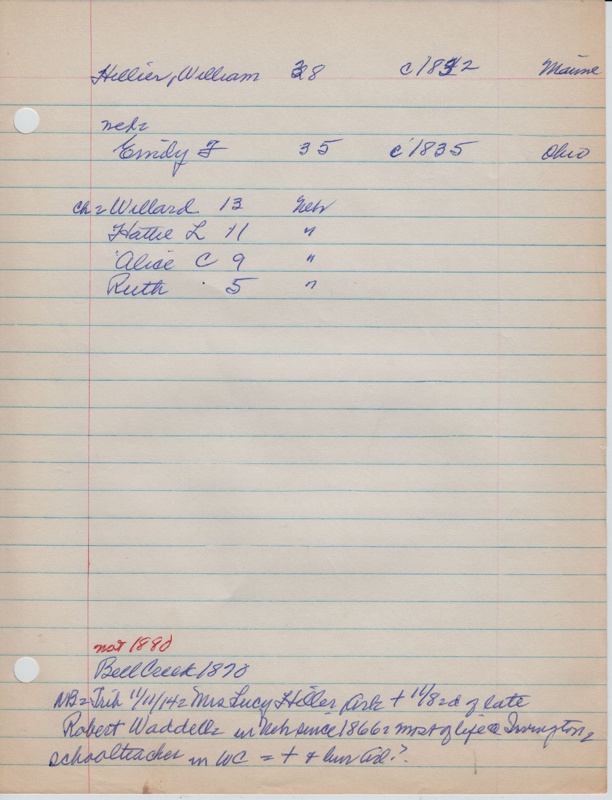 Hillier, William 38 c 1832 Maine
neb=
Emily F 35 c 1835 Ohio
ch = Willard 13 Neb
Hattie L 11 "
Alice C 9 "
Ruth 5 "
not 1880
Bell Creek 1870
NB = Trib 11/11/14 = Mrs Lucy Hiller, Arl + 11/8 = d of late
Robert Waddell = in Neb since 1866 = most of life @ Irvington,
schoolteacher in WC = + + bur Arl?.